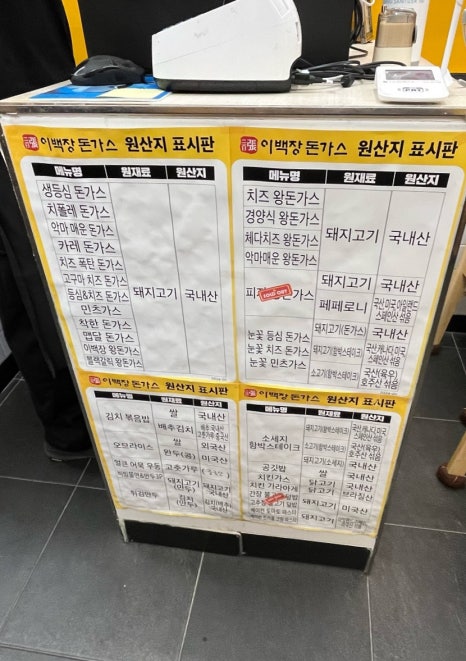 이백장 돈가스 원산지 표시판
메뉴명 원재료 원산지
생등심 돈가스
치폴레 돈가스
악마 매운 돈가스
카레 돈가스
치즈 폭탄 돈가스
고구마 치즈 돈가스
등심&치즈 돈가스
민츠가스
착한 돈가스
맵달 돈가스
이백장 왕돈가스
블랙갈릭 왕돈가스
돼지고기 국내산
이백장 돈가스 원산지 표시판
메뉴명 원재료 원산지
치즈 왕돈가스
경양식 왕돈가스
체다치즈 왕돈가스
악마매운 왕돈가스
돼지고기 국내산
SOLD OUT
돼지고기 국내산
페페로니 국산,미국,아일랜드
스페인산 섞음
눈꽃 등심 돈가스
눈꽃 치즈 돈가스
눈꽃 민츠가스
돼지고기(돈가스) 국내산
돼지고기(함박스테이크) 국산,캐나다,미국
스페인산 섞음
소고기(함박스테이크) 국산(육우)
호주산 섞음
이백장 돈가스 원산지 표시판
메뉴명 원재료 원산지
김치 볶음밥 쌀 국내산
배추김치
오므라이스 쌀 외국산
완두(콩) 미국산
얼큰 어묵 우동 고춧가루
튀김만두
돼지고기
(만두) 국내산
이백장 돈가스 원산지 표시판
메뉴명 원재료 원산지
소세지
함박스테이크
돼지고기(함박스테이크) 국산,캐나다,미국
스페인산 섞음
소고기(함박스테이크) 국산(육우)
호주산 섞음
돼지고기(소세지) 국내산
공깃밥 쌀 국내산
치킨가스 닭고기 국내산
치킨 가라아게 닭고기 브라질산
돼지고기 미국산